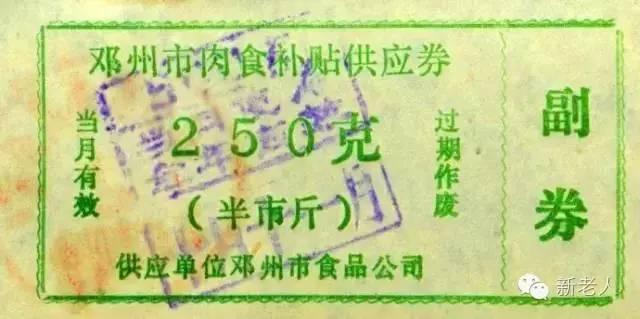 邓州市肉食补贴供应券
当月有效
250克
过期作废
(半市斤)
供应单位邓州市食品公司
副券
新老人